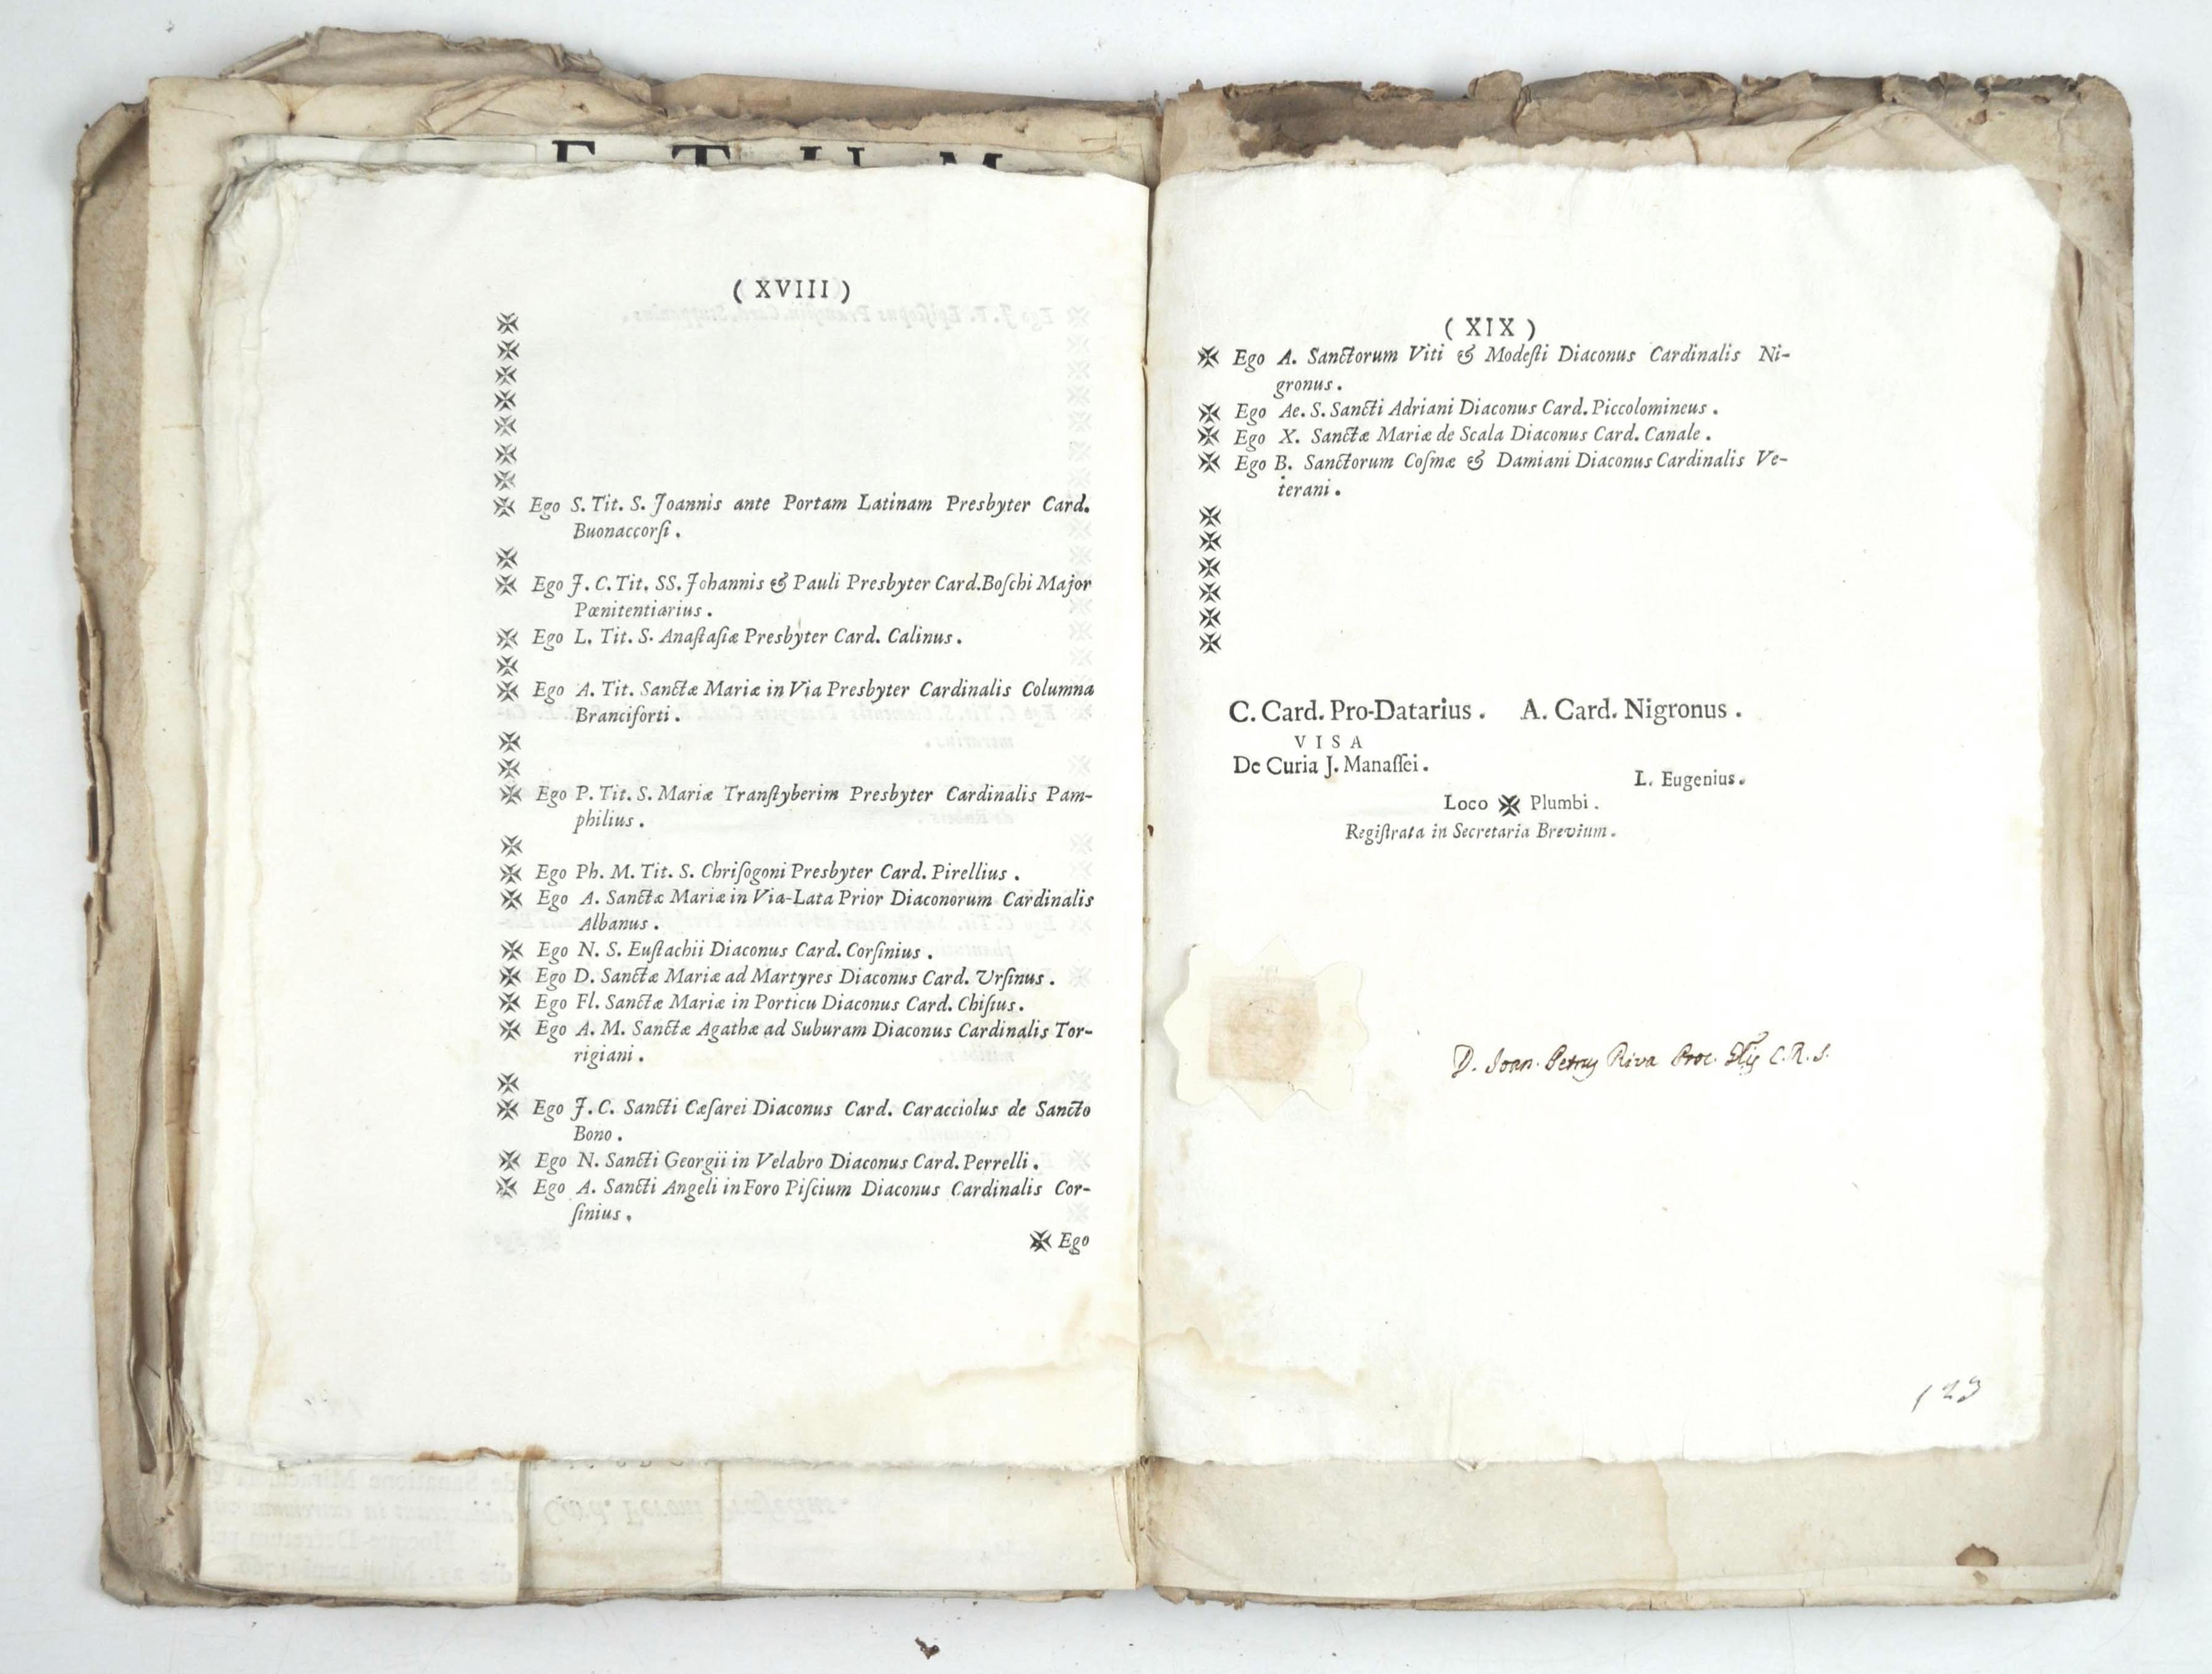 E T U M
( XVIII )
✠
✠
✠
✠
✠
✠
✠
✠ Ego S. Tit. S. Joannis ante Portam Latinam Presbyter Card.
Buonaccorſi .
✠
✠ Ego J. C. Tit. SS. Johannis & Pauli Presbyter Card. Boſchi Major
Pœnitentiarius .
✠ Ego L. Tit. S. Anaſtaſiæ Presbyter Card. Calinus .
✠
✠ Ego A. Tit. Sanctæ Mariæ in Via Presbyter Cardinalis Columna
Branciforti .
✠
✠
✠ Ego P. Tit. S. Mariæ Tranſtyberim Presbyter Cardinalis Pam-
philius .
✠
✠ Ego Ph. M. Tit. S. Chriſogoni Presbyter Card. Pirellius .
✠ Ego A. Sanctæ Mariæ in Via-Lata Prior Diaconorum Cardinalis
Albanus .
✠ Ego N. S. Euſtachii Diaconus Card. Corſinius .
✠ Ego D. Sanctæ Mariæ ad Martyres Diaconus Card. Urſinus .
✠ Ego Fl. Sanctæ Mariæ in Porticu Diaconus Card. Chiſius .
✠ Ego A. M. Sanctæ Agathæ ad Suburam Diaconus Cardinalis Tor-
rigiani .
✠
✠ Ego J. C. Sancti Cæſarei Diaconus Card. Caracciolus de Sancto
Bono .
✠ Ego N. Sancti Georgii in Velabro Diaconus Card. Perrelli .
✠ Ego A. Sancti Angeli in Foro Piſcium Diaconus Cardinalis Cor-
ſinius .
✠ Ego
( XIX )
✠ Ego A. Sanctorum Viti & Modeſti Diaconus Cardinalis Ni-
gronus .
✠ Ego Ae. S. Sancti Adriani Diaconus Card. Piccolomineus .
✠ Ego X. Sanctæ Mariæ de Scala Diaconus Card. Canale .
✠ Ego B. Sanctorum Coſmæ & Damiani Diaconus Cardinalis Ve-
terani .
✠
✠
✠
✠
✠
✠
C. Card. Pro-Datarius . A. Card. Nigronus .
VISA
De Curia J. Manaſſei .
L. Eugenius .
Loco ✠ Plumbi .
Regiſtrata in Secretaria Brevium .
D. Joan. Petrus Riva Proc. Glis C. R. S.
123